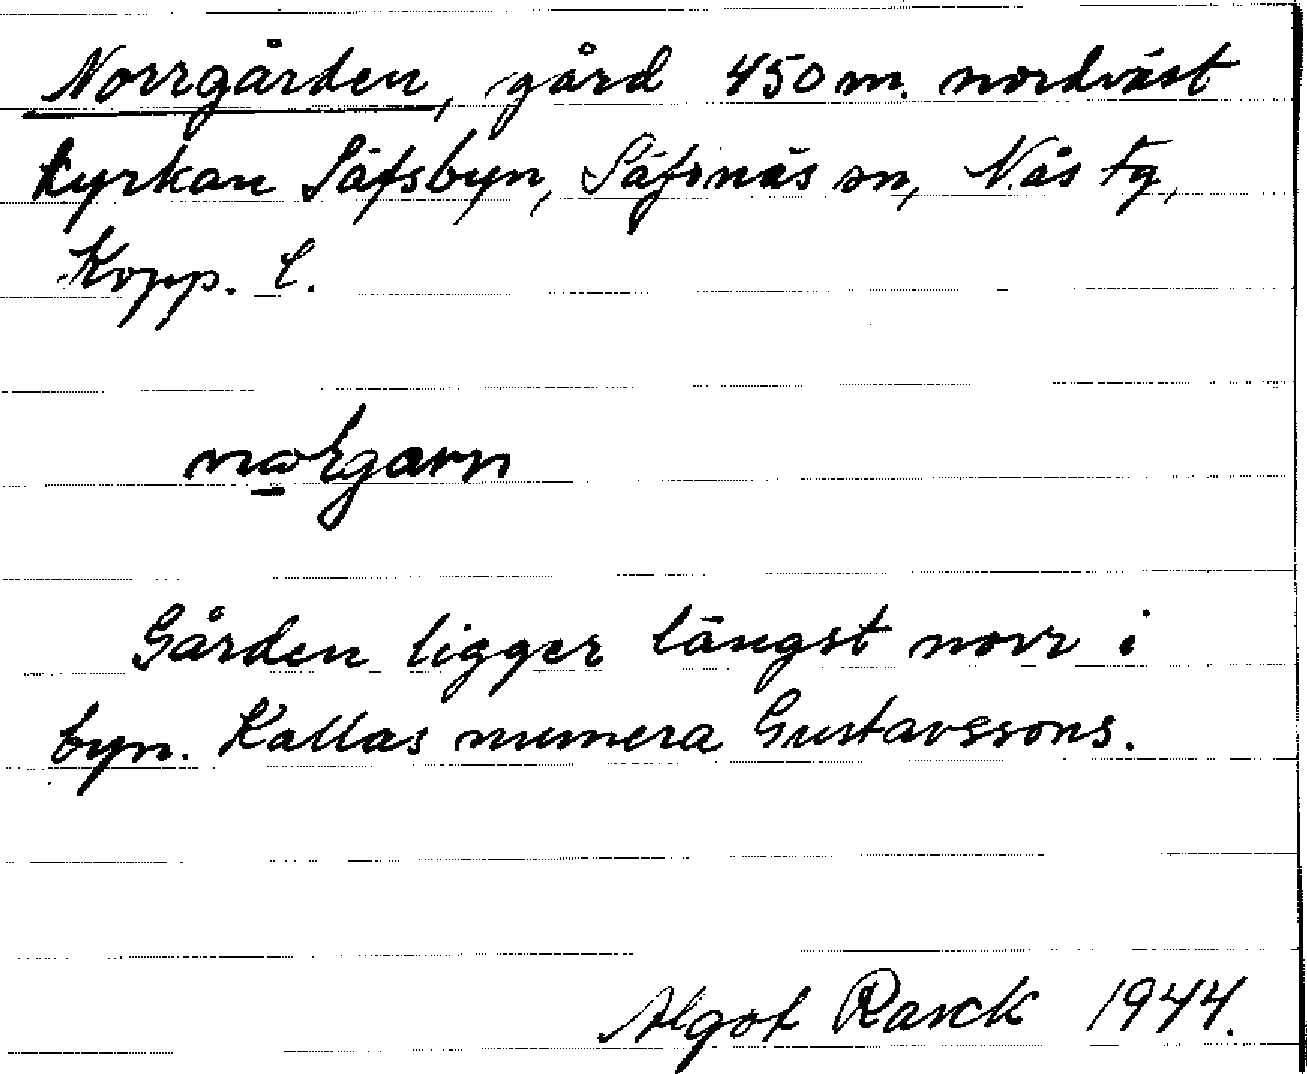 Norrgården, gård 450 m. nordväst
kyrkan Säfsbyn, Säfsnäs sn, Nås tg,
Kopp. l.
Gården ligger längst norr i
byn. Kallas numera Gustavssons.
Algot Rarck 1944.